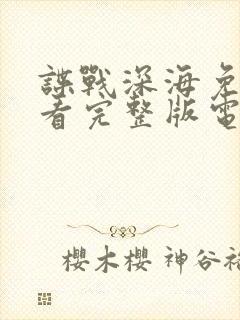 諜戰深海免
看完整版電
櫻木櫻 神谷裕